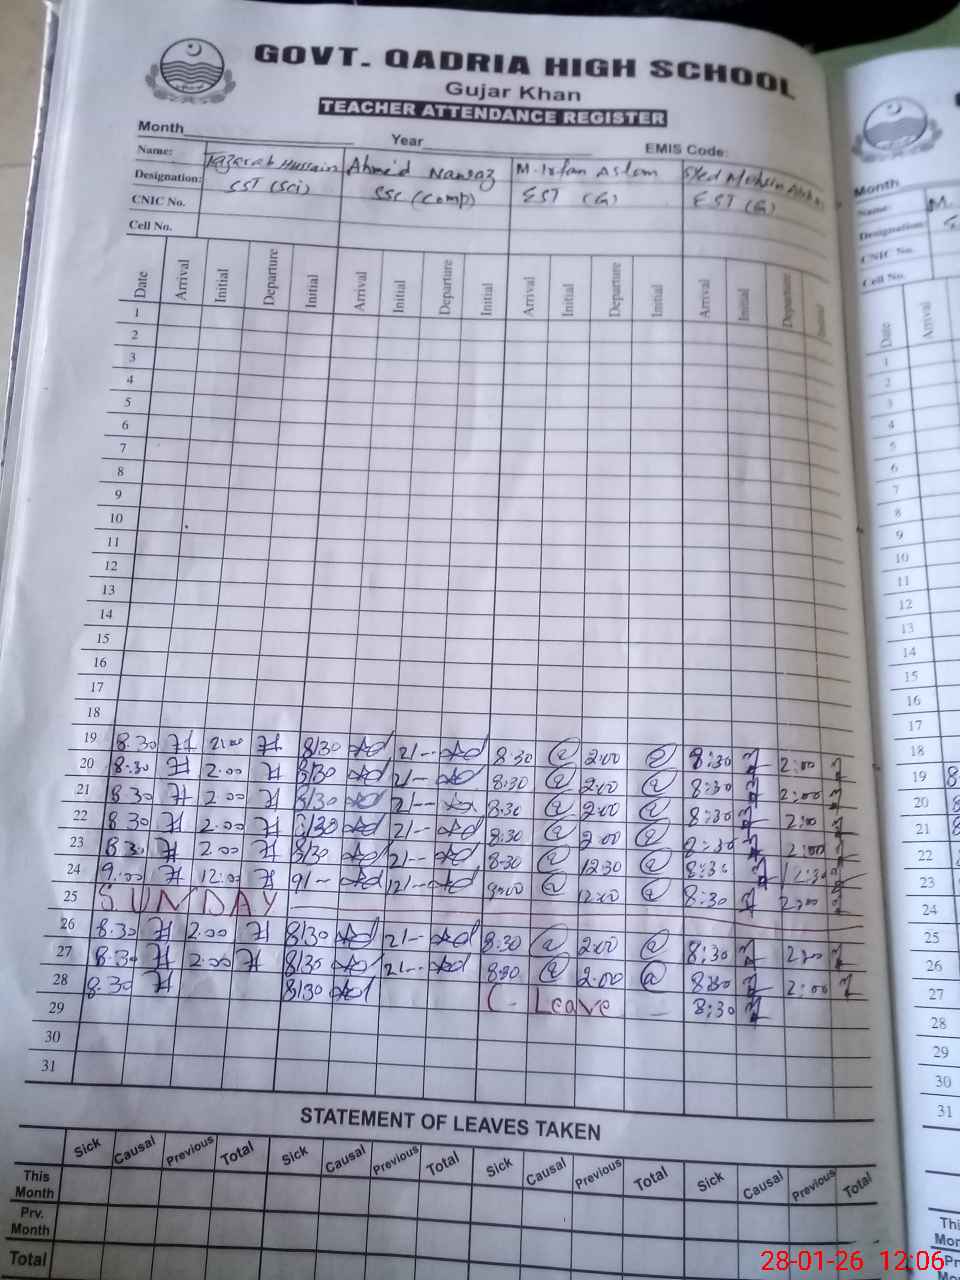 GOVT. QADRIA HIGH SCHOOL
Gujar Khan
TEACHER ATTENDANCE REGISTER
Month Year EMIS Code:
Name: Hussain Ahmed Nawaz M. Irfan Aslam Syed Mohsin
Designation: SST (Sci) SSC (Comp) EST (G) EST (G)
CNIC No.
Cell No.
Date Arrival Initial Departure Initial Arrival Initial Departure Initial Arrival Initial Departure Initial Arrival Initial Departure Initial
1
2
3
4
5
6
7
8
9
10
11
12
13
14
15
16
17
18
19 8:30 2:00 8/30 2/-- 8:30 2:00 8:30 2:00
20 8:30 2:00 8/30 2/-- 8:30 2:00 8:30 2:00
21 8:30 2:00 8/30 2/-- 8:30 2:00 8:30 2:00
22 8:30 2:00 8/30 2/-- 8:30 2:00 8:30 2:00
23 8:30 2:00 8/30 2/-- 8:30 12:30 8:30 12:30
24 9:00 12:00 9/-- 12/-- 9:00 12:00 8:30 2:00
25 SUNDAY
26 8:30 2:00 8/30 2/-- 8:30 2:00 8:30 2:00
27 8:30 2:00 8/30 2/-- 8:30 2:00 8:30 2:00
28 8:30 8/30 C- Leave 8:30
29
30
31
STATEMENT OF LEAVES TAKEN
Sick Causal Previous Total Sick Causal Previous Total Sick Causal Previous Total Sick Causal Previous Total
This Month
Prv. Month
Total
Month
Name: M.
Designation:
CNIC No.
Cell No.
Date Arrival
1
2
3
4
5
6
7
8
9
10
11
12
13
14
15
16
17
18
19
20
21
22
23
24
25
26
27
28
29
30
31
28-01-26 12:06